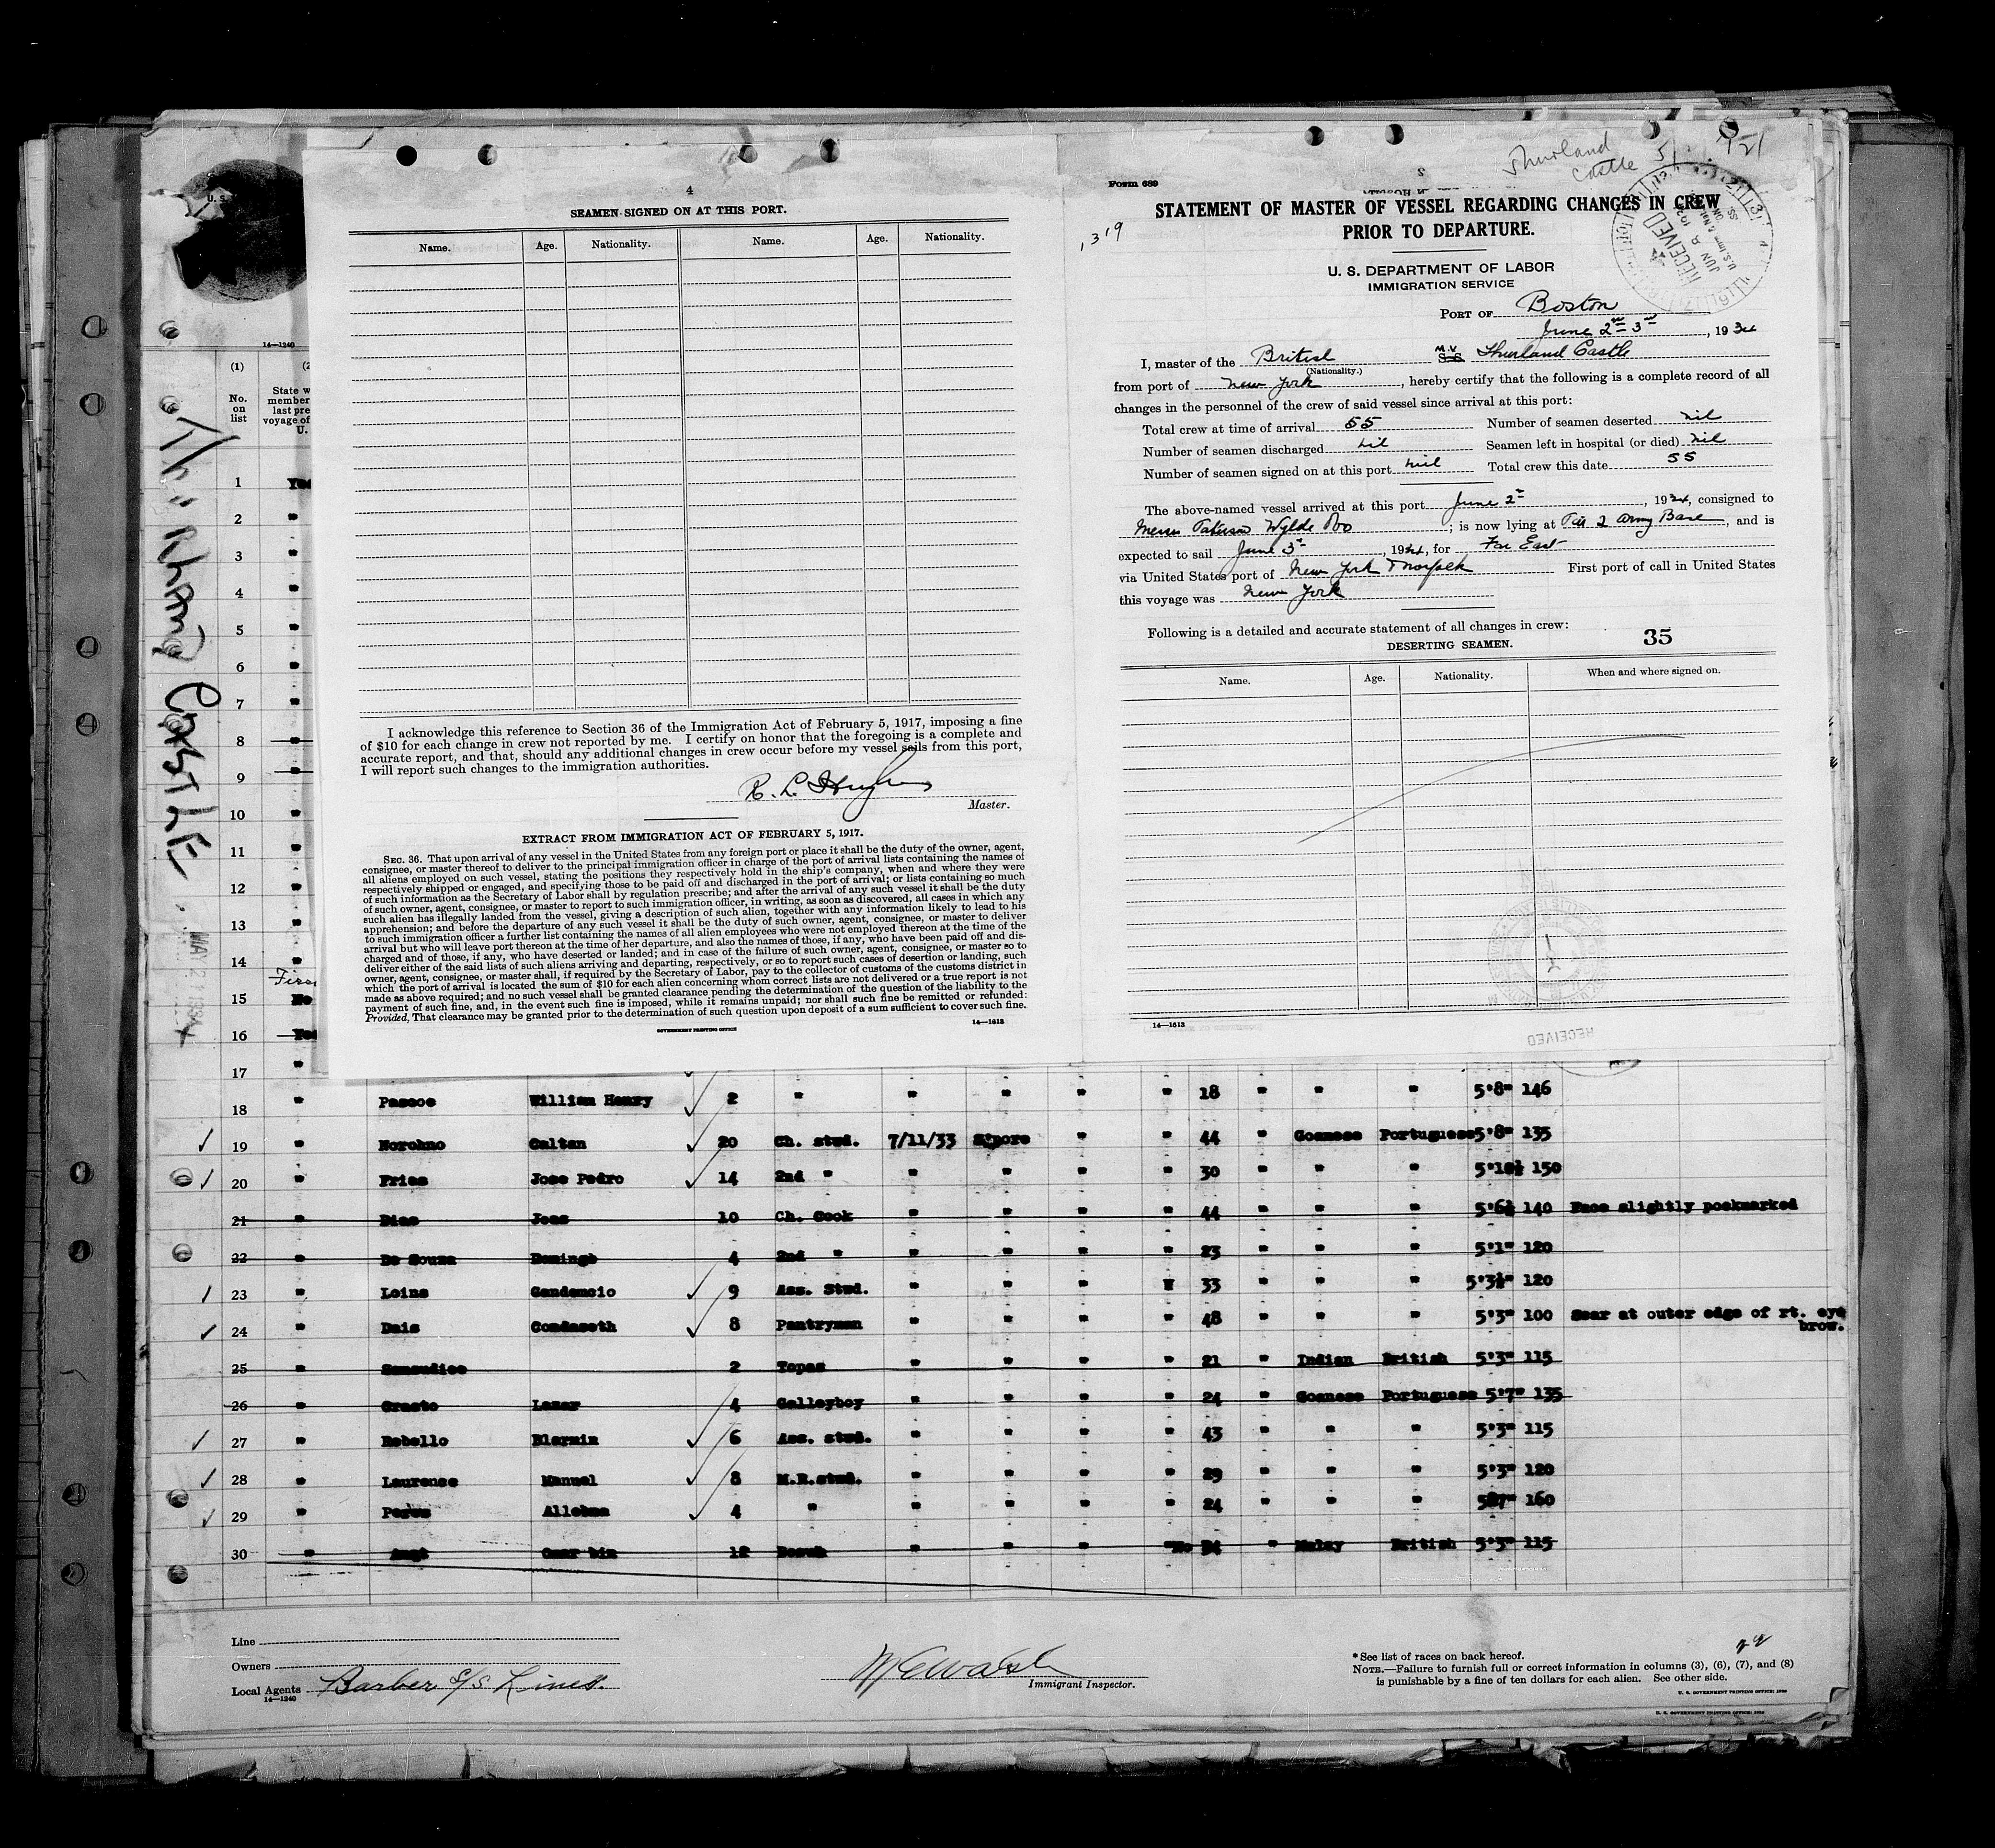 4
SEAMEN SIGNED ON AT THIS PORT.
Name. Age. Nationality. Name. Age. Nationality.
I acknowledge this reference to Section 36 of the Immigration Act of February 5, 1917, imposing a fine
of $10 for each change in crew not reported by me. I certify on honor that the foregoing is a complete and
accurate report, and that, should any additional changes in crew occur before my vessel sails from this port,
I will report such changes to the immigration authorities.
R. L. Hughes
Master.
EXTRACT FROM IMMIGRATION ACT OF FEBRUARY 5, 1917.
SEC. 36. That upon arrival of any vessel in the United States from any foreign port or place it shall be the duty of the owner, agent,
consignee, or master thereof to deliver to the principal immigration officer in charge of the port of arrival lists containing the names of
all aliens employed on such vessel, stating the positions they respectively hold in the ship's company, when and where they were
respectively shipped or engaged, and specifying those to be paid off and discharged in the port of arrival; or lists containing so much
of such information as the Secretary of Labor shall by regulation prescribe; and after the arrival of any such vessel it shall be the duty
of such owner, agent, consignee, or master to report to such immigration officer, in writing, as soon as discovered, all cases in which any
such alien has illegally landed from the vessel, giving a description of such alien, together with any information likely to lead to his
apprehension; and before the departure of any such vessel it shall be the duty of such owner, agent, consignee, or master to deliver
to such immigration officer a further list containing the names of all alien employees who were not employed thereon at the time of the
arrival but who will leave port thereon at the time of her departure, and also the names of those, if any, who have been paid off and dis-
charged and of those, if any, who have deserted or landed; and in case of the failure of such owner, agent, consignee, or master so to
deliver either of the said lists of such aliens arriving and departing, respectively, or so to report such cases of desertion or landing, such
owner, agent, consignee, or master shall, if required by the Secretary of Labor, pay to the collector of customs of the customs district in
which the port of arrival is located the sum of $10 for each alien concerning whom correct lists are not delivered or a true report is not
made as above required; and no such vessel shall be granted clearance pending the determination of the question of the liability to the
payment of such fine, and, in the event such fine is imposed, while it remains unpaid; nor shall such fine be remitted or refunded:
Provided, That clearance may be granted prior to the determination of such question upon deposit of a sum sufficient to cover such fine.
GOVERNMENT PRINTING OFFICE 14—1613
Thurland
Castle
Form 689
STATEMENT OF MASTER OF VESSEL REGARDING CHANGES IN CREW
PRIOR TO DEPARTURE.
1319
U. S. DEPARTMENT OF LABOR
IMMIGRATION SERVICE
RECEIVED
JUN
PORT OF Boston
June 2nd 3rd, 1934
I, master of the British M.V. S.S. Thurland Castle
(Nationality.)
from port of New York, hereby certify that the following is a complete record of all
changes in the personnel of the crew of said vessel since arrival at this port:
Total crew at time of arrival 55 Number of seamen deserted nil
Number of seamen discharged nil Seamen left in hospital (or died) nil
Number of seamen signed on at this port nil Total crew this date 55
The above-named vessel arrived at this port June 2nd, 1934, consigned to
Messrs Paterson Wylde; is now lying at Pier 2 Army Base, and is
expected to sail June 3rd, 1934, for Far East
via United States port of New York & Norfolk First port of call in United States
this voyage was New York
Following is a detailed and accurate statement of all changes in crew:
35
DESERTING SEAMEN.
Name. Age. Nationality. When and where signed on.
14—1613
RECEIVED
U. S.
14—1240
(1)
No.
on
list
State w
member
last pre
voyage of
U.
CASTLE
MAY 1934
1 Yes
2 "
3 "
4 "
5 "
6 "
7 "
8 "
9 "
10 "
11 "
12 "
13 "
14 "
15 No
16 Yes
17 "
18 " Pascoe William Henry 2 " " " " " 18 " " " 5'8" 146
19 " Norohno Caitan 20 Ch. stwd. 7/11/33 S'pore " " 44 " Goanese Portuguese 5'8" 135
20 " Frias Jose Pedro 14 2nd " " " " " 30 " " " 5'10½ 150
21 " Dias Joas 10 Ch. Cook " " " " 44 " " " 5'6½ 140 Face slightly pockmarked
22 " De Souza Domingo 4 2nd " " " " " 23 " " " 5'1" 120
23 " Loins 9 Ass. Stwd. " " " " 33 " " " 5'3½" 120
24 " Dais 8 Pantryman " " " " 48 " " " 5'3" 100 Scar at outer edge of rt. eye
brow.
25 " 2 Topas " " " " 21 " Indian British 5'3" 115
26 " Lazar 4 Galleyboy " " " " 24 " Goanese Portuguese 5'7" 135
27 " Rebello 6 Ass. stwd. " " " " 43 " " " 5'3" 115
28 " Laurense Manuel 8 M.R.stwd. " " " " 29 " " " 5'3" 120
29 " 4 " " " " " 24 " " " 5'7" 160
30 " Omar bin 12 " " " "No 34 " Malay British 5'3" 115
Line
Owners
Local Agents Barber S/S Lines.
14—1240
Immigrant Inspector.
* See list of races on back hereof.
NOTE.—Failure to furnish full or correct information in columns (3), (6), (7), and (8)
is punishable by a fine of ten dollars for each alien. See other side.
U. S. GOVERNMENT PRINTING OFFICE: 1930
U. S. GOVERNMENT PRINTING OFFICE: 1930